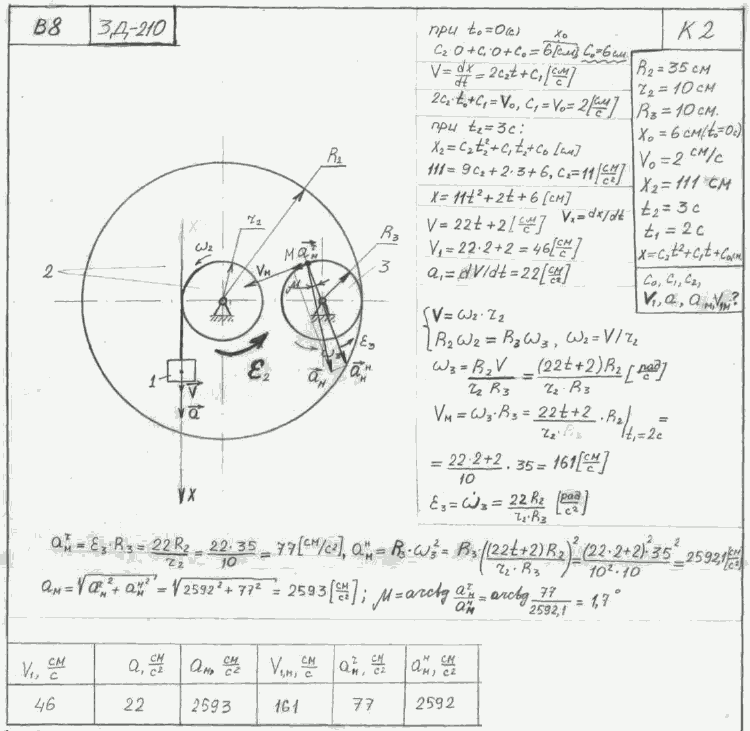 В8
ЗД-210
К2
при t₀=0(с)
x₀
C₂·0+C₁·0+C₀=6[см] C₀=6см
V=dx/dt=2C₂t+C₁[см/с]
2C₂·t₀+C₁=V₀, C₁=V₀=2[см/с]
при t₂=3с:
X₂=C₂t₂²+C₁t₂+C₀ [см]
111=9C₂+2·3+6, C₂=11[см/с²]
X=11t²+2t+6 [см]
V=22t+2[см/с] Vₓ=dx/dt
V₁=22·2+2=46[см/с]
a₁=dV/dt=22[см/с²]
R₂=35см
r₂=10см
R₃=10см.
X₀=6см(t₀=0с)
V₀=2 см/с
X₂=111 см
t₂=3с
t₁=2с
X=C₂t²+C₁t+C₀
C₀, C₁, C₂,
V₁, a, aₘ, V₁ₘ?
{V=ω₂·r₂
R₂ω₂=R₃ω₃, ω₂=V/r₂
ω₃=R₂V/(r₂R₃)=(22t+2)R₂/(r₂·R₃)[рад/с]
Vₘ=ω₃·R₃=(22t+2)/r₂·R₂|t₁=2с=
=(22·2+2)/10·35=161[см/с]
ε₃=ω̇₃=22R₂/(r₂·R₃)[рад/с²]
R₂
r₂
R₃
ω₂
2
M
aᴹτ
Vᴹ
μ
3
ε₃
ω₃
ε₂
aᴹ
aᴹн
1
V
a
X
aᴹτ=ε₃·R₃=22R₂/r₂=22·35/10=77[см/с²], aᴹн=R₃·ω₃²=R₃·((22t+2)R₂/(r₂·R₃))²=(22·2+2)²·35²/(10²·10)=2592,1[см/с²]
aᴹ=√(aᴹτ²+aᴹн²)=√(2592²+77²)=2593[см/с²]; μ=arctg aᴹτ/aᴹн=arctg 77/2592,1=1,7°
V₁, см/с a, см/с² aₘ, см/с² V₁,ₘ, см/с aᴹτ, см/с² aᴹн, см/с²
46 22 2593 161 77 2592